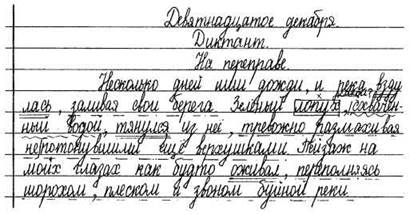 Девятнадцатое декабря.
Диктант.
На переправе.
Несколько дней шли дожди, и река взду
лась, заливая свои берега. Зелёный лопух, схвачен-
ный водой, тянулся из неё, тревожно размахивая
непотонувшими ещё верхушками. Пейзаж на
моих глазах как будто оживал, переполняясь
шорохом, плеском и звоном буйной реки.